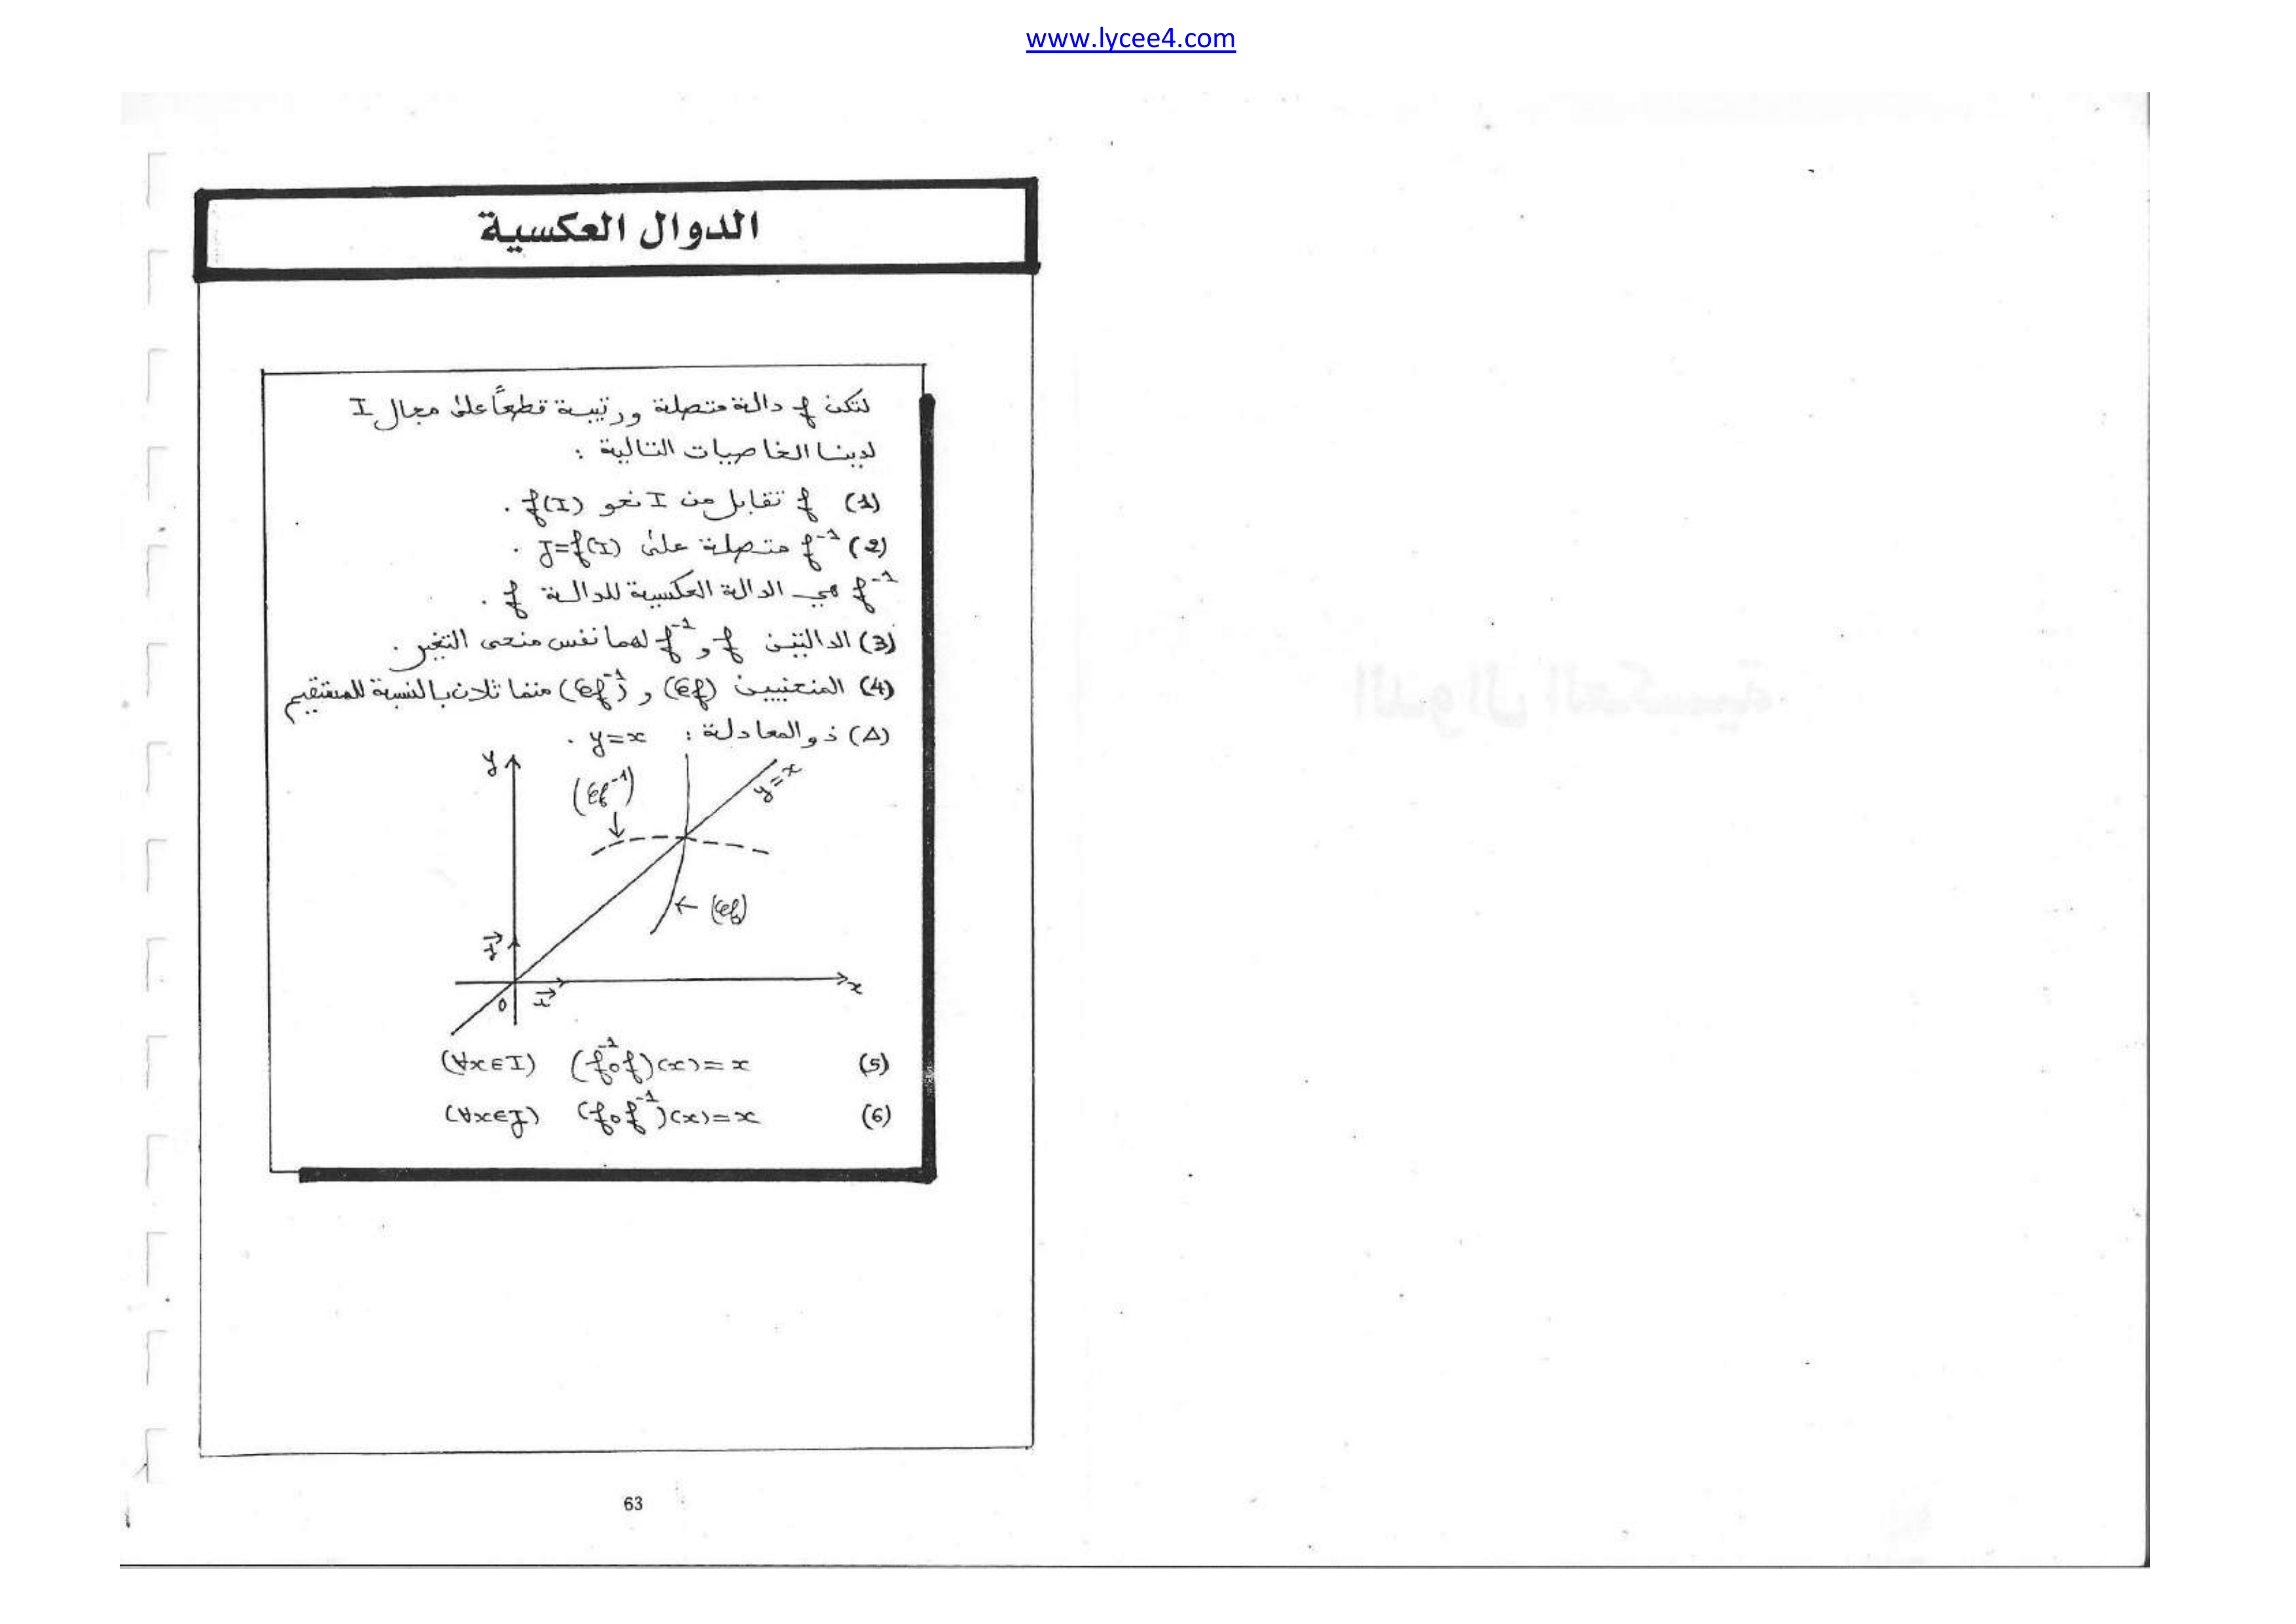 www.lycee4.com
الدوال العكسية
لتكن f دالة متصلة ورتيبة قطعاً على مجال I
لدينا الخاصيات التالية :
(1) f تقابل من I نحو f(I) .
(2) f⁻¹ متصلة على J=f(I) .
f⁻¹ هي الدالة العكسية للدالة f .
(3) الدالتين f و f⁻¹ لهما نفس منحى التغير .
(4) المنحنيين (𝒞f) و (𝒞f⁻¹) متماثلان بالنسبة للمستقيم
(Δ) ذو المعادلة : y=x .
y
(𝒞f⁻¹)
y=x
(𝒞f)
j
o
i
x
(5) (f⁻¹∘f)(x)=x (∀x∈I)
(6) (f∘f⁻¹)(x)=x (∀x∈J)
63